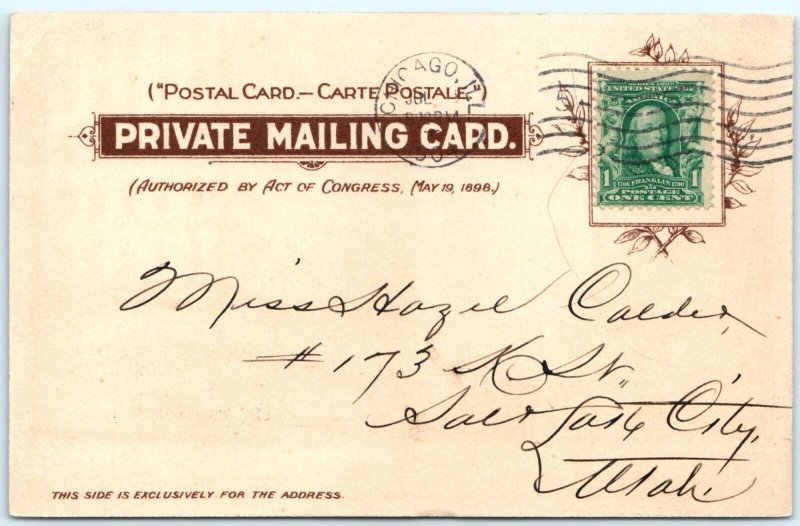 ("POSTAL CARD.—CARTE POSTALE.")
PRIVATE MAILING CARD.
(AUTHORIZED BY ACT OF CONGRESS, MAY 19, 1898.)
CHICAGO, ILL.
JUL
PM
UNITED STATES OF AMERICA
1 FRANKLIN 1
1706 1790
POSTAGE
ONE CENT
Miss Hazel Calder,
#173 K St.
Salt Lake City,
Utah.
THIS SIDE IS EXCLUSIVELY FOR THE ADDRESS.